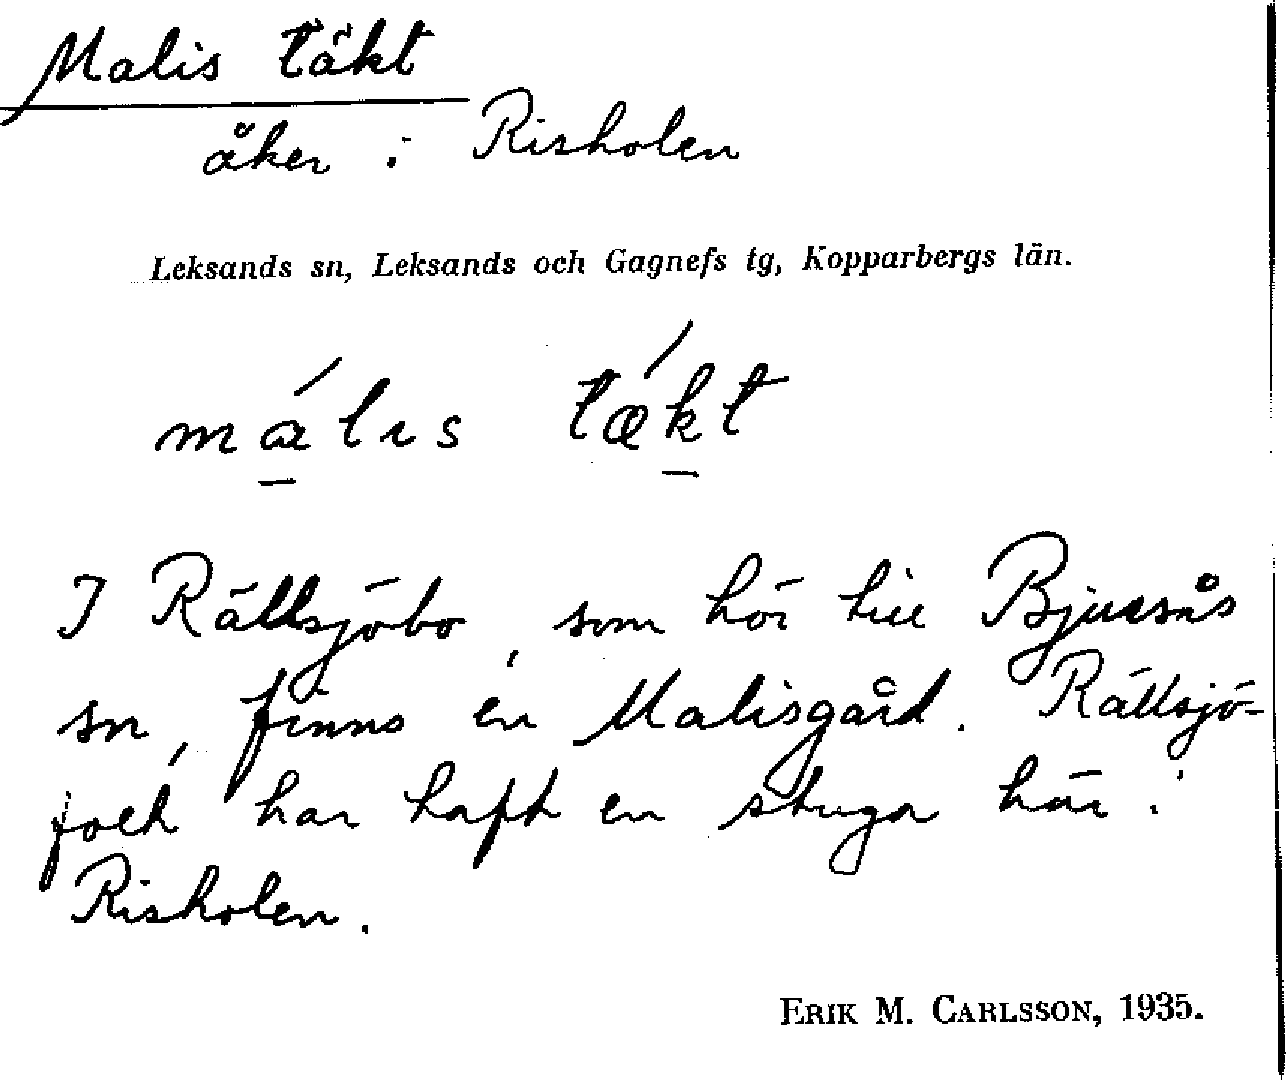 Malis täkt
åker i Risholen
Leksands sn, Leksands och Gagnefs tg, Kopparbergs län.
má̱lıs tǽḵt
I Rällsjöbo, som hör till Bjursås
sn, finns en Malisgård. Rällsjö-
folk har haft en stuga här i
Risholen.
ERIK M. CARLSSON, 1935.